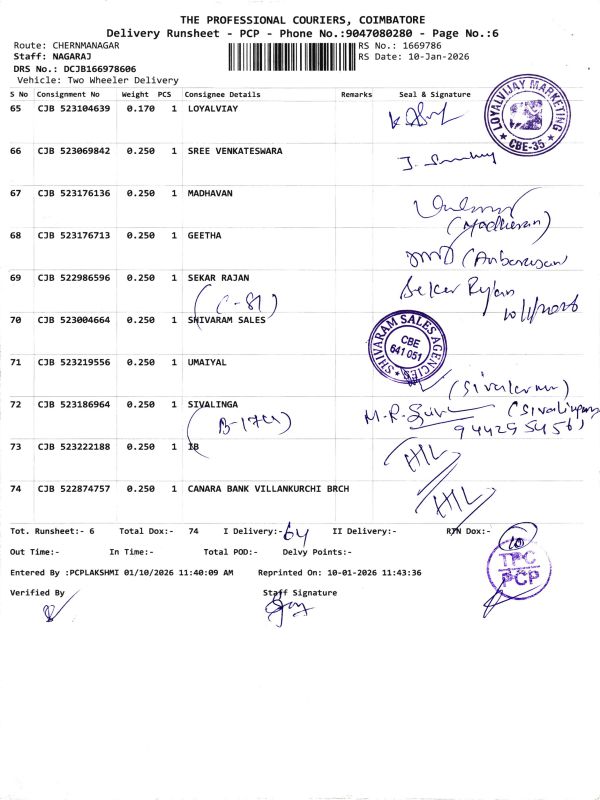 THE PROFESSIONAL COURIERS, COIMBATORE
Delivery Runsheet - PCP - Phone No.:9047080280 - Page No.:6
Route: CHERNMANAGAR
RS No.: 1669786
Staff: NAGARAJ
RS Date: 10-Jan-2026
DRS No.: DCJB166978606
Vehicle: Two Wheeler Delivery
S No Consignment No Weight PCS Consignee Details Remarks Seal & Signature
65 CJB 523104639 0.170 1 LOYALVIJAY
LOYALVIJAY MARKETING
* CBE-35 *
66 CJB 523069842 0.250 1 SREE VENKATESWARA
67 CJB 523176136 0.250 1 MADHAVAN
(Madhavan)
68 CJB 523176713 0.250 1 GEETHA
69 CJB 522986596 0.250 1 SEKAR RAJAN
Sekar Rajan
10/1/2026
(C-81)
70 CJB 523004664 0.250 1 SHIVARAM SALES
SHIVARAM SALES AGENCIES
CBE
641 051
71 CJB 523219556 0.250 1 UMAIYAL
72 CJB 523186964 0.250 1 SIVALINGA
M.R.
(Sivalingam)
73 CJB 523222188 0.250 1 IB
74 CJB 522874757 0.250 1 CANARA BANK VILLANKURCHI BRCH
Tot. Runsheet:- 6 Total Dox:- 74 I Delivery:- 64 II Delivery:- RTN Dox:- 10
Out Time:- In Time:- Total POD:- Delvy Points:-
TPC
PCP
Entered By :PCPLAKSHMI 01/10/2026 11:40:09 AM Reprinted On: 10-01-2026 11:43:36
Verified By Staff Signature